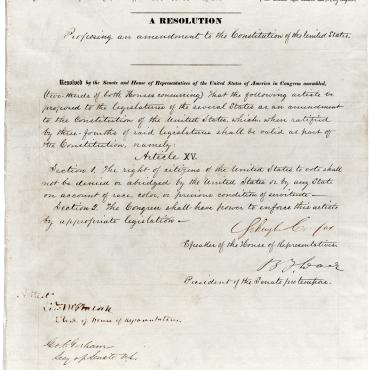 A RESOLUTION
Proposing an amendment to the Constitution of the United States.
Resolved by the Senate and House of Representatives of the United States of America in Congress assembled,
(two-thirds of both Houses concurring) That the following article be
proposed to the legislatures of the several States as an amendment
to the Constitution of the United States, which, when ratified
by three-fourths of said legislatures shall be valid as part of
the Constitution, namely:
Article XV.
Section 1. The right of citizens of the United States to vote shall
not be denied or abridged by the United States or by any State
on account of race, color, or previous condition of servitude—
Section 2. The Congress shall have power to enforce this article
by appropriate legislation—
Schuyler Colfax
Speaker of the House of Representatives.
B F Wade
President of the Senate pro tempore.
Attest
Clerk of House of Representatives.
Geo. C. Gorham
Secy of Senate U.S.